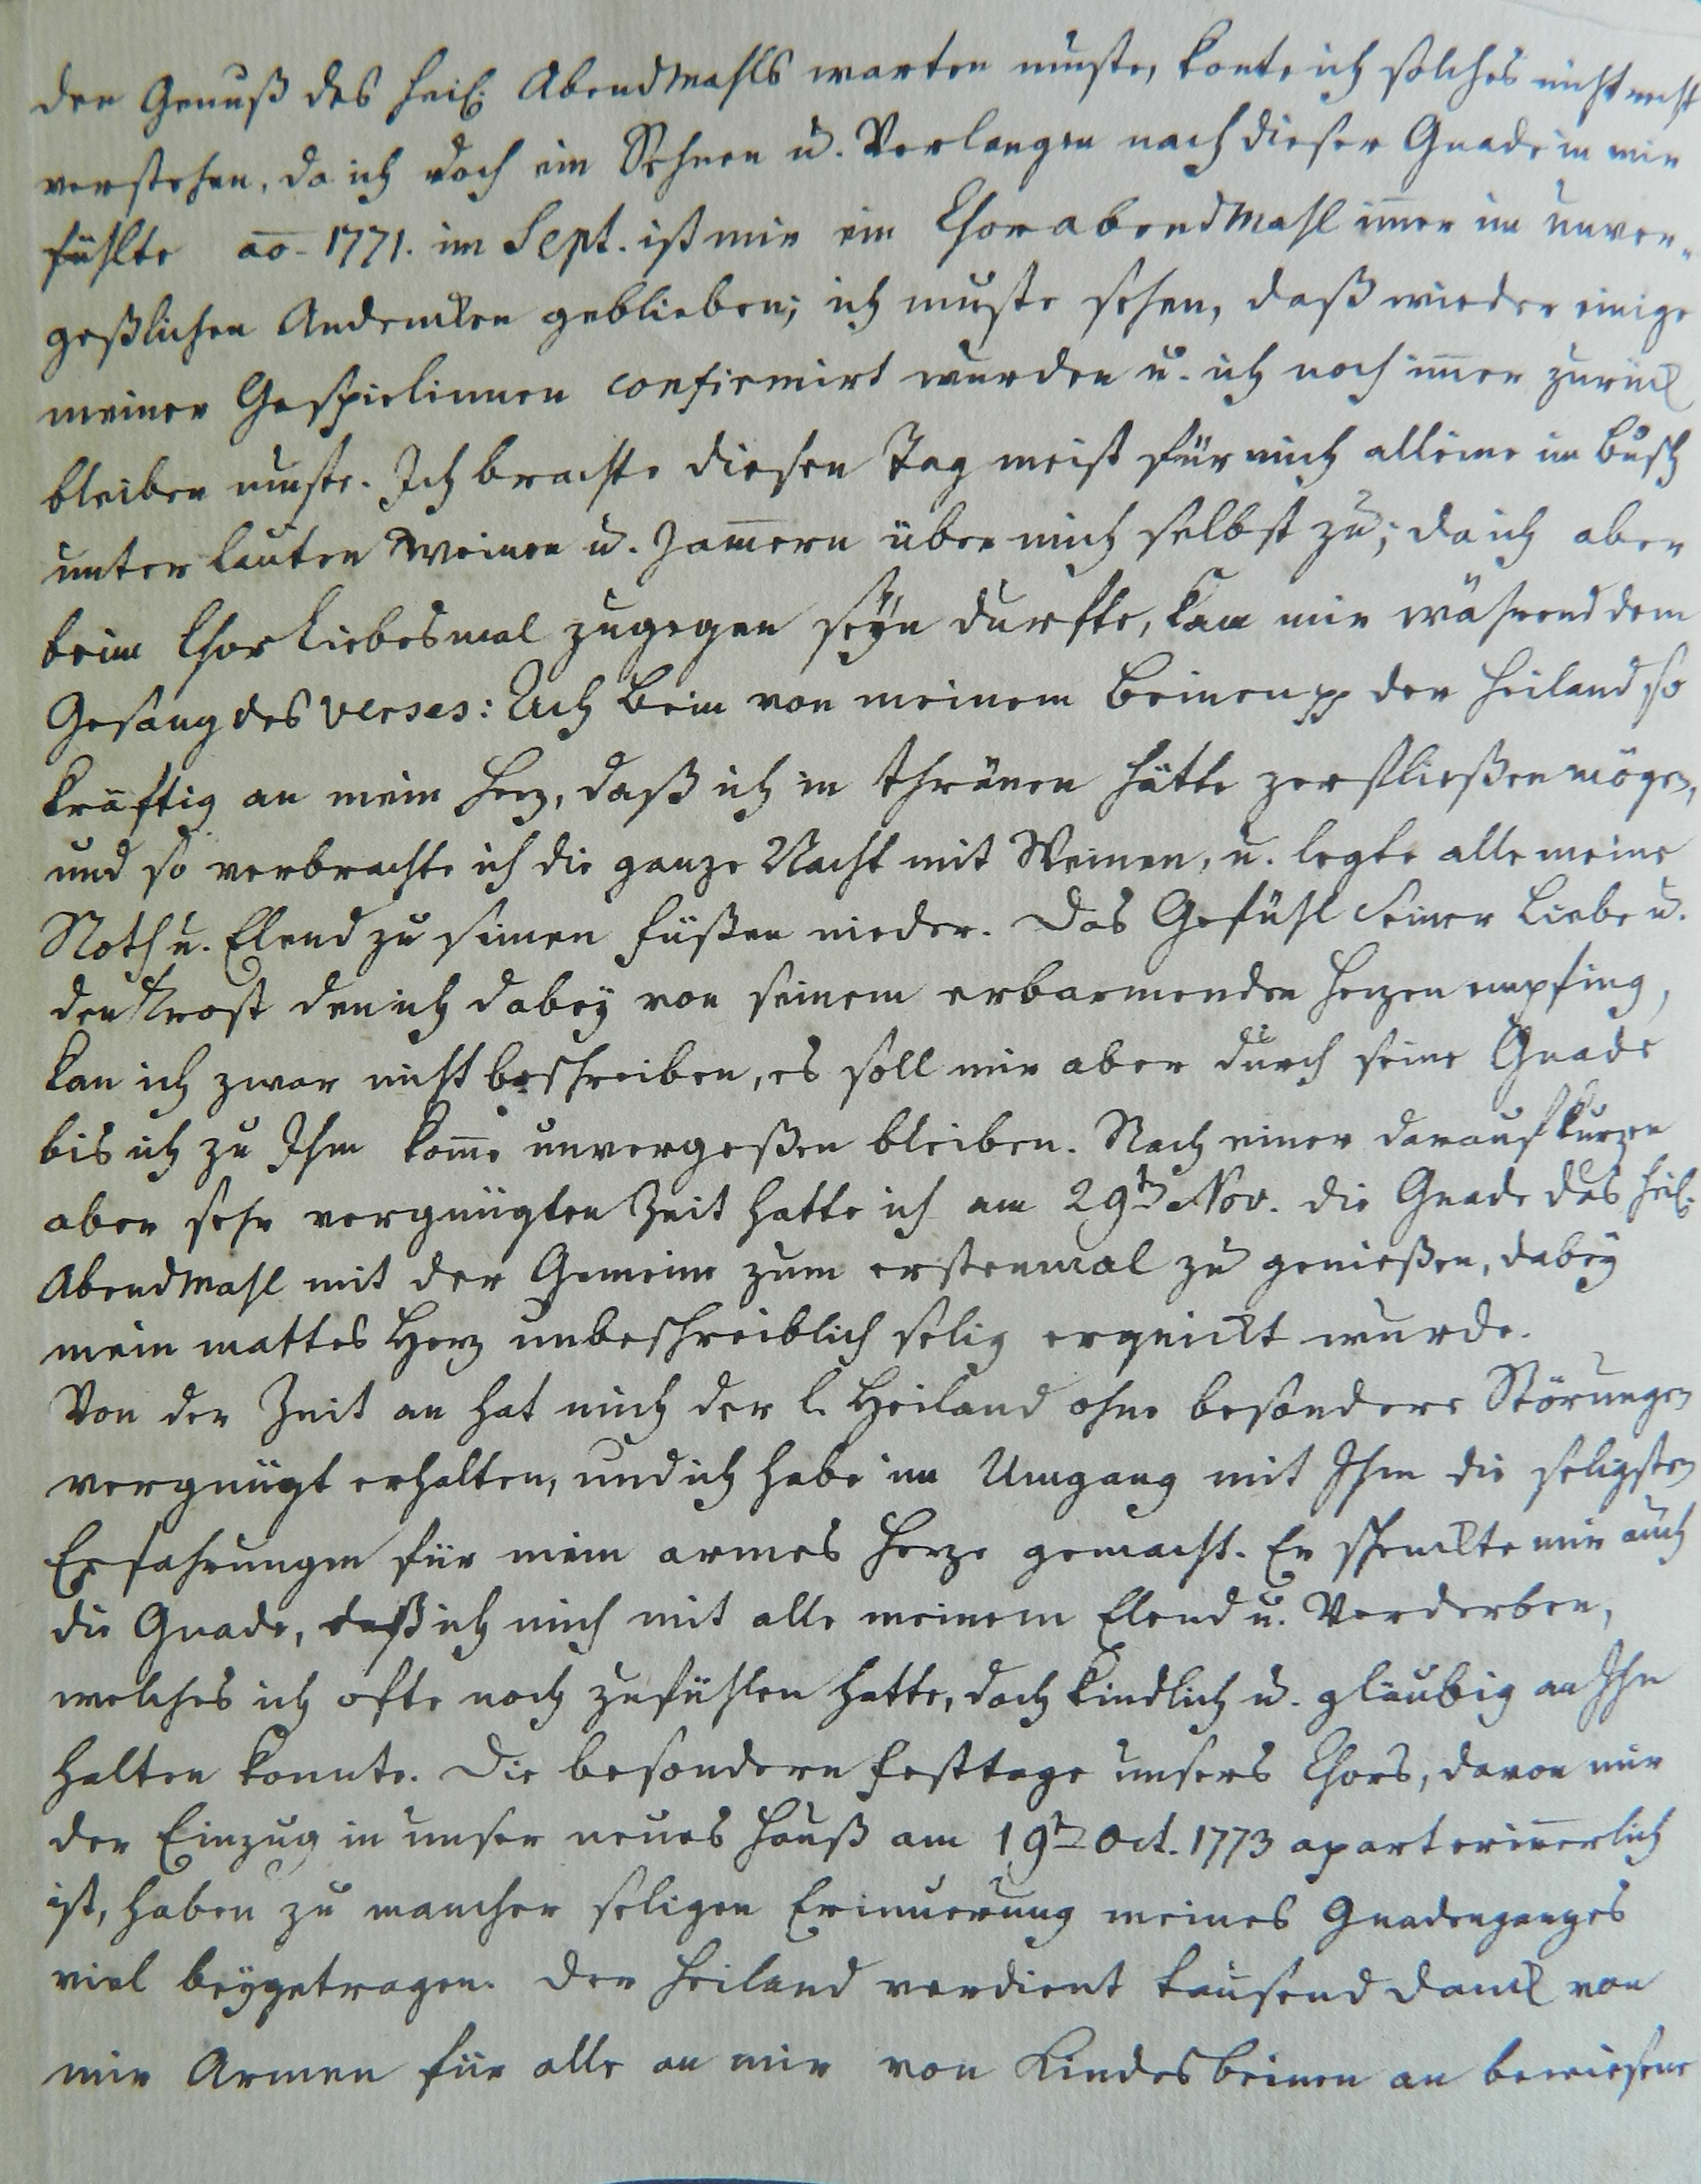 den Genuß des heil. Abendmahls warten muste, konte ich solches nicht recht
verstehen, da ich doch ein Sehnen u. Verlangen nach dieser Gnade in mir
fühlte ao. 1771. im Sept. ist mir ein Chorabendmahl im̅er im unver-
geßlichen Andencken geblieben; ich muste sehen, daß wieder einige
meiner Gespielinnen confirmirt wurden u. ich noch im̅er zurück
bleiben muste. Ich brachte diesen Tag meist für mich alleine im Busch
unter lauten Weinen u. Jam̅ern über mich selbst zu; da ich aber
beim Chor Liebesmal zugegen seÿn durfte, kam mir während dem
Gesang des Verses: Ach Bein von meinem Beinen pp der Heiland so
kräftig an mein Herz, daß ich in thränen hätte zerfließen mögen,
und so verbrachte ich die ganze Nacht mit Weinen, u. legte alle meine
Noth u. Elend zu seinen Füßen nieder. Das Gefühl Seiner Liebe u.
den Trost den ich dabeÿ von seinem erbarmenden Herzen empfing,
kan ich zwar nicht beschreiben, es soll mir aber durch seine Gnade
bis ich zu Ihm kom̅e unvergeßen bleiben. Nach einer darauf kurzen
aber sehr vergnügten Zeit hatte ich am 29ten Nov. die Gnade das heil.
Abendmahl mit der Gemeine zum erstenmal zu genießen, dabeÿ
mein mattes Herz unbeschreiblich selig erquickt wurde.
Von der Zeit an hat mich der l. Heiland ohne besondere Störungen
vergnügt erhalten, und ich habe im Umgang mit Ihm die seligsten
Erfahrungen für mein armes Herze gemacht. Er schenckte mir auch
die Gnade, daß ich mich mit alle meinem Elend u. Verderben,
welches ich ofte noch zu fühlen hatte, doch kindlich u. gläubig an Ihn
halten konnte. Die besondern Festtage unsers Chors, davon mir
der Einzug in unser neues Hauß am 19ten Oct. 1773 apart erin̅erlich
ist, haben zu mancher seligen Erinnerung meines Gnadenganges
viel beÿgetragen. Der Heiland verdient tausend Danck von
mir Armen für alle an mir von Kindesbeinen an bewiesene